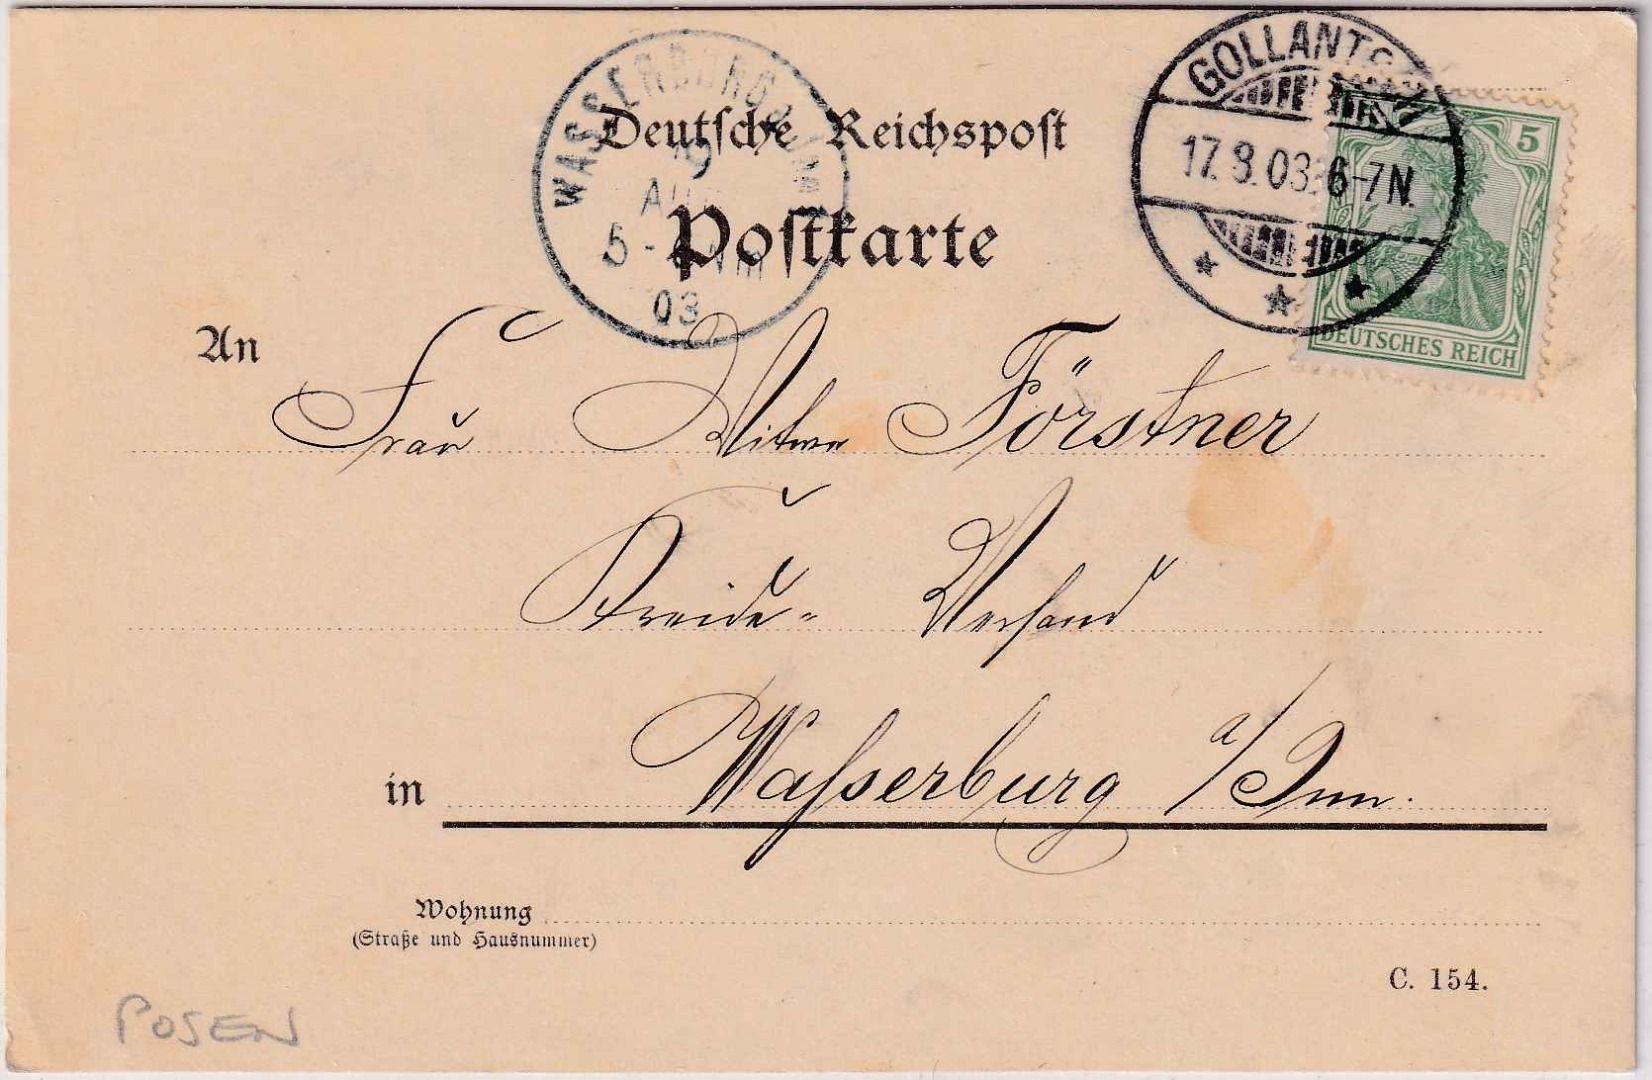 Deutsche Reichspost
Postkarte
WASSERBURG
5 -
03
GOLLANTSCH
17. 8. 03. 6-7N.
5
DEUTSCHES REICH
An
Frau Witwe Förstner
Kreide- Versand
in Wasserburg a/Inn.
Wohnung
(Straße und Hausnummer)
C. 154.
POSEN